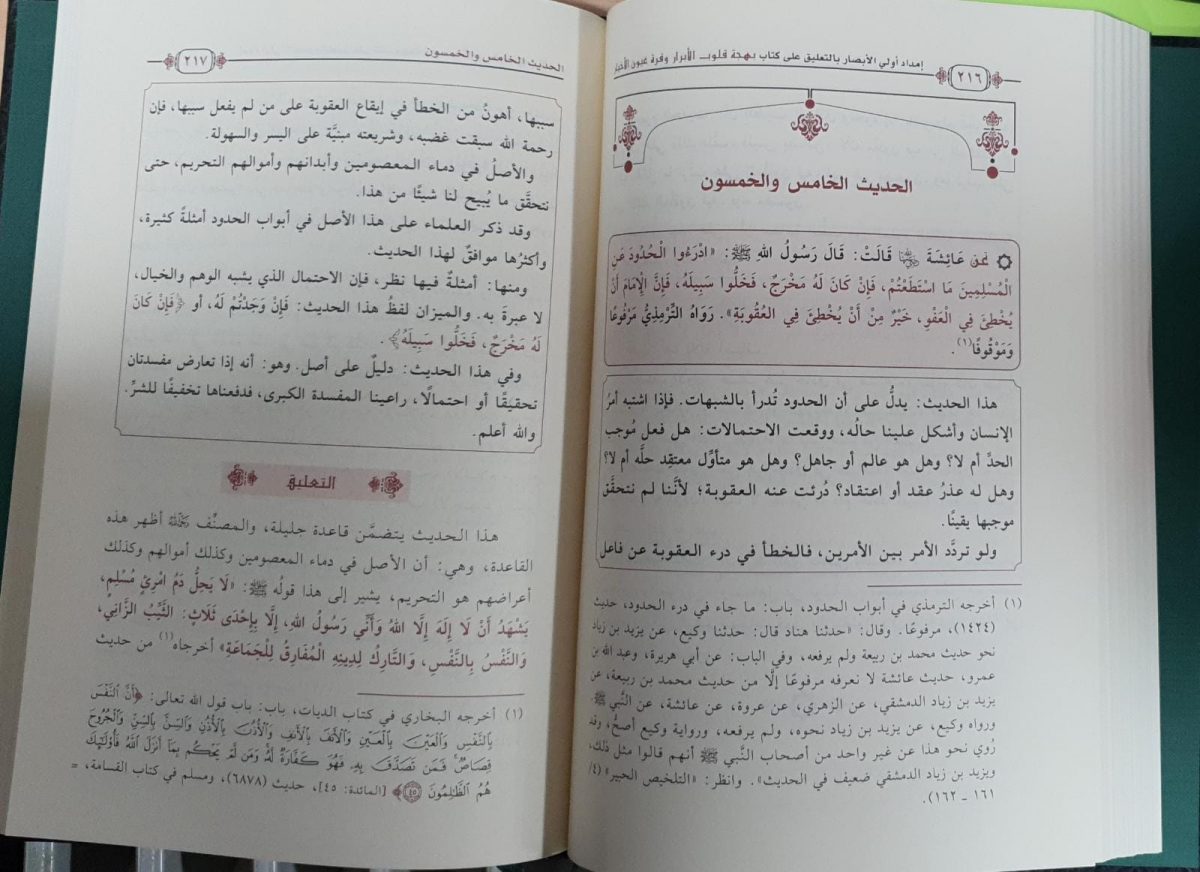 إمداد أولي الأبصار بالتعليق على كتاب بهجة قلوب الأبرار وقرة عيون الأخيار
٢١٦
الحديث الخامس والخمسون
عَنْ عَائِشَةَ ﵂ قَالَتْ: قَالَ رَسُولُ اللهِ ﷺ: «ادْرَءُوا الْحُدُودَ عَنِ
الْمُسْلِمِينَ مَا اسْتَطَعْتُمْ، فَإِنْ كَانَ لَهُ مَخْرَجٌ، فَخَلُّوا سَبِيلَهُ، فَإِنَّ الْإِمَامَ أَنْ
يُخْطِئَ فِي الْعَفْوِ، خَيْرٌ مِنْ أَنْ يُخْطِئَ فِي الْعُقُوبَةِ». رَوَاهُ التِّرْمِذِيُّ مَرْفُوعًا
وَمَوْقُوفًا(١).
هذا الحديث: يدلُّ على أن الحدود تُدرأ بالشبهات. فإذا اشتبه أمرُ
الإنسان وأشكل علينا حالُه، ووقعت الاحتمالات: هل فعل مُوجب
الحدِّ أم لا؟ وهل هو عالم أو جاهل؟ وهل هو متأوِّل معتقِد حلَّه أم لا؟
وهل له عذرُ عقد أو اعتقاد؟ دُرئت عنه العقوبة؛ لأنَّنا لم نتحقَّق
موجبها يقينًا.
ولو تردَّد الأمر بين الأمرين، فالخطأ في درء العقوبة عن فاعل
(١) أخرجه الترمذي في أبواب الحدود، باب: ما جاء في درء الحدود، حديث
(١٤٢٤)، مرفوعًا. وقال: «حدثنا هناد قال: حدثنا وكيع، عن يزيد بن زياد
نحو حديث محمد بن ربيعة ولم يرفعه، وفي الباب: عن أبي هريرة، وعبد الله بن
عمرو، حديث عائشة لا نعرفه مرفوعًا إلَّا من حديث محمد بن ربيعة، عن
يزيد بن زياد الدمشقي، عن الزهري، عن عروة، عن عائشة، عن النَّبي ﷺ.
ورواه وكيع، عن يزيد بن زياد نحوه، ولم يرفعه، ورواية وكيع أصحُّ، وقد
رُوي نحو هذا عن غير واحد من أصحاب النَّبي ﷺ أنهم قالوا مثل ذلك،
ويزيد بن زياد الدمشقي ضعيف في الحديث». وانظر: «التلخيص الحبير» (٤/
١٦١ - ١٦٢).
الحديث الخامس والخمسون
٢١٧
سببها، أهونُ من الخطأ في إيقاع العقوبة على من لم يفعل سببها، فإن
رحمة الله سبقت غضبه، وشريعته مبنيَّة على اليسر والسهولة.
والأصلُ في دماء المعصومين وأبدانهم وأموالهم التحريم، حتى
نتحقَّق ما يُبيح لنا شيئًا من هذا.
وقد ذكر العلماء على هذا الأصل في أبواب الحدود أمثلةً كثيرة،
وأكثرُها موافقٌ لهذا الحديث.
ومنها: أمثلةٌ فيها نظر، فإن الاحتمال الذي يشبه الوهم والخيال،
لا عبرة به. والميزان لفظُ هذا الحديث: فَإِنْ وَجَدْتُمْ لَهُ، أو ﴿فَإِنْ كَانَ
لَهُ مَخْرَجٌ، فَخَلُّوا سَبِيلَهُ﴾.
وفي هذا الحديث: دليلٌ على أصل. وهو: أنه إذا تعارض مفسدتان
تحقيقًا أو احتمالًا، راعينا المفسدة الكبرى، فدفعناها تخفيفًا للشرِّ.
والله أعلم.
التعليق
هذا الحديث يتضمَّن قاعدة جليلة، والمصنِّف ﵀ أظهر هذه
القاعدة، وهي: أن الأصل في دماء المعصومين وكذلك أموالهم وكذلك
أعراضهم هو التحريم، يشير إلى هذا قولُه ﷺ: «لَا يَحِلُّ دَمُ امْرِئٍ مُسْلِمٍ،
يَشْهَدُ أَنْ لَا إِلَهَ إِلَّا اللهُ وَأَنِّي رَسُولُ اللهِ، إِلَّا بِإِحْدَى ثَلَاثٍ: الثَّيِّبُ الزَّانِي،
وَالنَّفْسُ بِالنَّفْسِ، وَالتَّارِكُ لِدِينِهِ الْمُفَارِقُ لِلْجَمَاعَةِ» أخرجاه(١) من حديث
(١) أخرجه البخاري في كتاب الديات، باب: باب قول الله تعالى: ﴿أَنَّ ٱلنَّفْسَ
بِٱلنَّفْسِ وَٱلْعَيْنَ بِٱلْعَيْنِ وَٱلْأَنفَ بِٱلْأَنفِ وَٱلْأُذُنَ بِٱلْأُذُنِ وَٱلسِّنَّ بِٱلسِّنِّ وَٱلْجُرُوحَ
قِصَاصٌ ۚ فَمَن تَصَدَّقَ بِهِۦ فَهُوَ كَفَّارَةٌ لَّهُۥ ۚ وَمَن لَّمْ يَحْكُم بِمَآ أَنزَلَ ٱللَّهُ فَأُو۟لَـٰٓئِكَ
هُمُ ٱلظَّـٰلِمُونَ ٤٥﴾ [المائدة: ٤٥]، حديث (٦٨٧٨)، ومسلم في كتاب القسامة، =